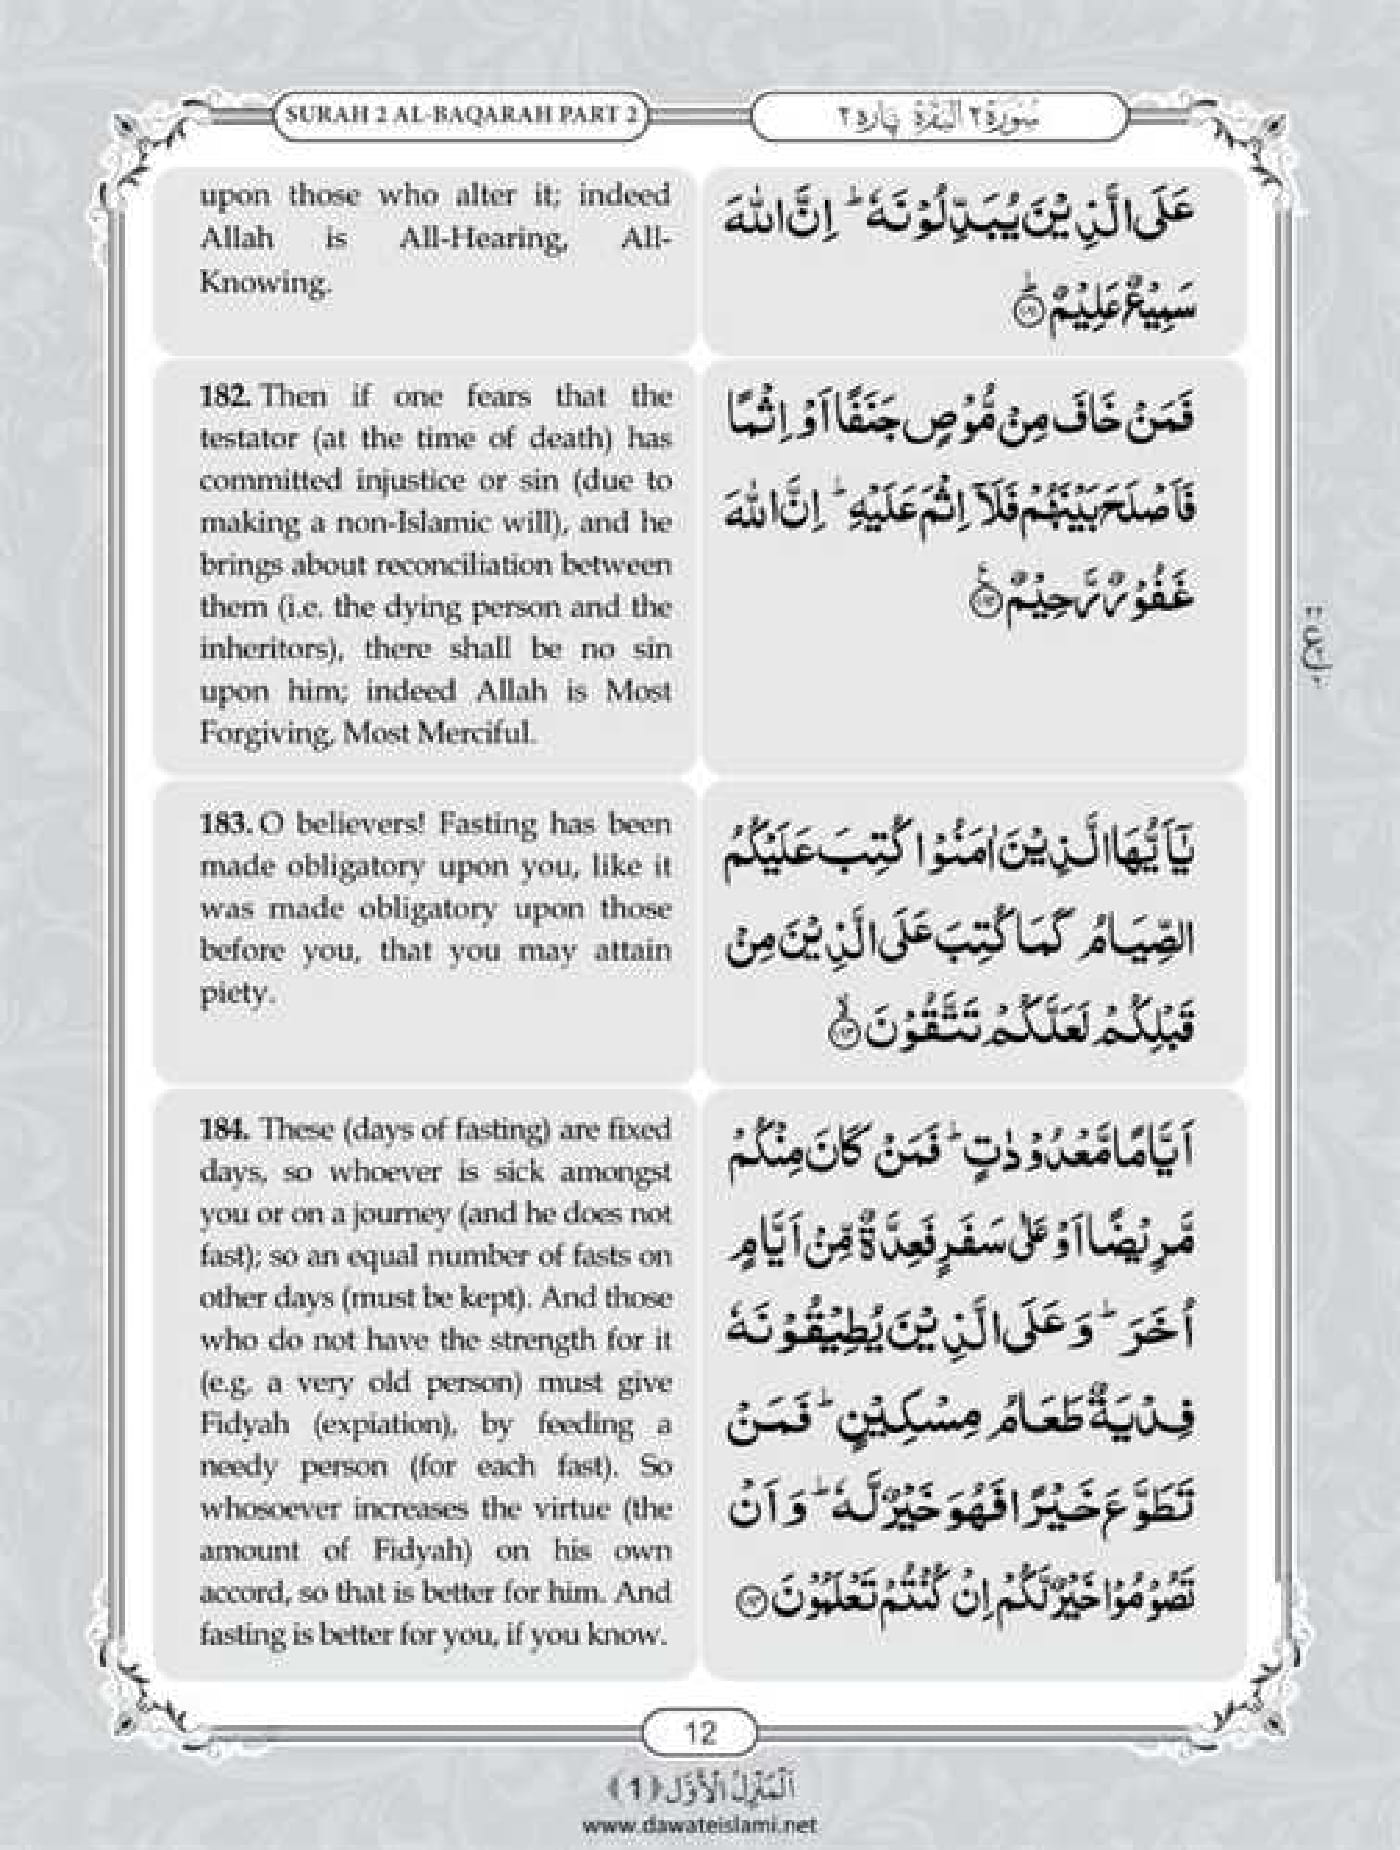 SURAH 2 AL-BAQARAH PART 2
سُوْرَة ٢ الْبَقَرَة پَاره ٢
upon those who alter it; indeed
Allah is All-Hearing, All-
Knowing.
عَلَى الَّذِيْنَ يُبَدِّلُوْنَهٗ ؕ اِنَّ اللّٰهَ
سَمِيْعٌ عَلِيْمٌ ؕ ﴿۱۸۱﴾
182. Then if one fears that the
testator (at the time of death) has
committed injustice or sin (due to
making a non-Islamic will), and he
brings about reconciliation between
them (i.e. the dying person and the
inheritors), there shall be no sin
upon him; indeed Allah is Most
Forgiving, Most Merciful.
فَمَنْ خَافَ مِنْ مُّوْصٍ جَنَفًا اَوْ اِثْمًا
فَاَصْلَحَ بَيْنَهُمْ فَلَاۤ اِثْمَ عَلَيْهِ ؕ اِنَّ اللّٰهَ
غَفُوْرٌ رَّحِيْمٌ ﴿۱۸۲﴾
183. O believers! Fasting has been
made obligatory upon you, like it
was made obligatory upon those
before you, that you may attain
piety.
يٰۤاَيُّهَا الَّذِيْنَ اٰمَنُوْا كُتِبَ عَلَيْكُمُ
الصِّيَامُ كَمَا كُتِبَ عَلَى الَّذِيْنَ مِنْ
قَبْلِكُمْ لَعَلَّكُمْ تَتَّقُوْنَ ۙ ﴿۱۸۳﴾
184. These (days of fasting) are fixed
days, so whoever is sick amongst
you or on a journey (and he does not
fast); so an equal number of fasts on
other days (must be kept). And those
who do not have the strength for it
(e.g. a very old person) must give
Fidyah (expiation), by feeding a
needy person (for each fast). So
whosoever increases the virtue (the
amount of Fidyah) on his own
accord, so that is better for him. And
fasting is better for you, if you know.
اَيَّامًا مَّعْدُوْدٰتٍ ؕ فَمَنْ كَانَ مِنْكُمْ
مَّرِيْضًا اَوْ عَلٰى سَفَرٍ فَعِدَّةٌ مِّنْ اَيَّامٍ
اُخَرَ ؕ وَ عَلَى الَّذِيْنَ يُطِيْقُوْنَهٗ
فِدْيَةٌ طَعَامُ مِسْكِيْنٍ ؕ فَمَنْ
تَطَوَّعَ خَيْرًا فَهُوَ خَيْرٌ لَّهٗ ؕ وَ اَنْ
تَصُوْمُوْا خَيْرٌ لَّكُمْ اِنْ كُنْتُمْ تَعْلَمُوْنَ ﴿۱۸۴﴾
12
اَلْمَنْزِلُ الْاَوَّل ﴿1﴾
www.dawateislami.net